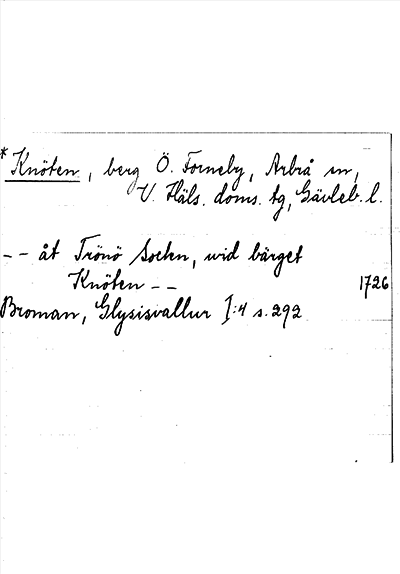 * Knöten, berg Ö. Forneby, Arbrå sn,
V. Häls. doms. tg, Gävleb. l.
-- åt Trönö Sochn, wid bärget
Knöten -- 1726
Broman, Glysisvallur I:4 s. 292